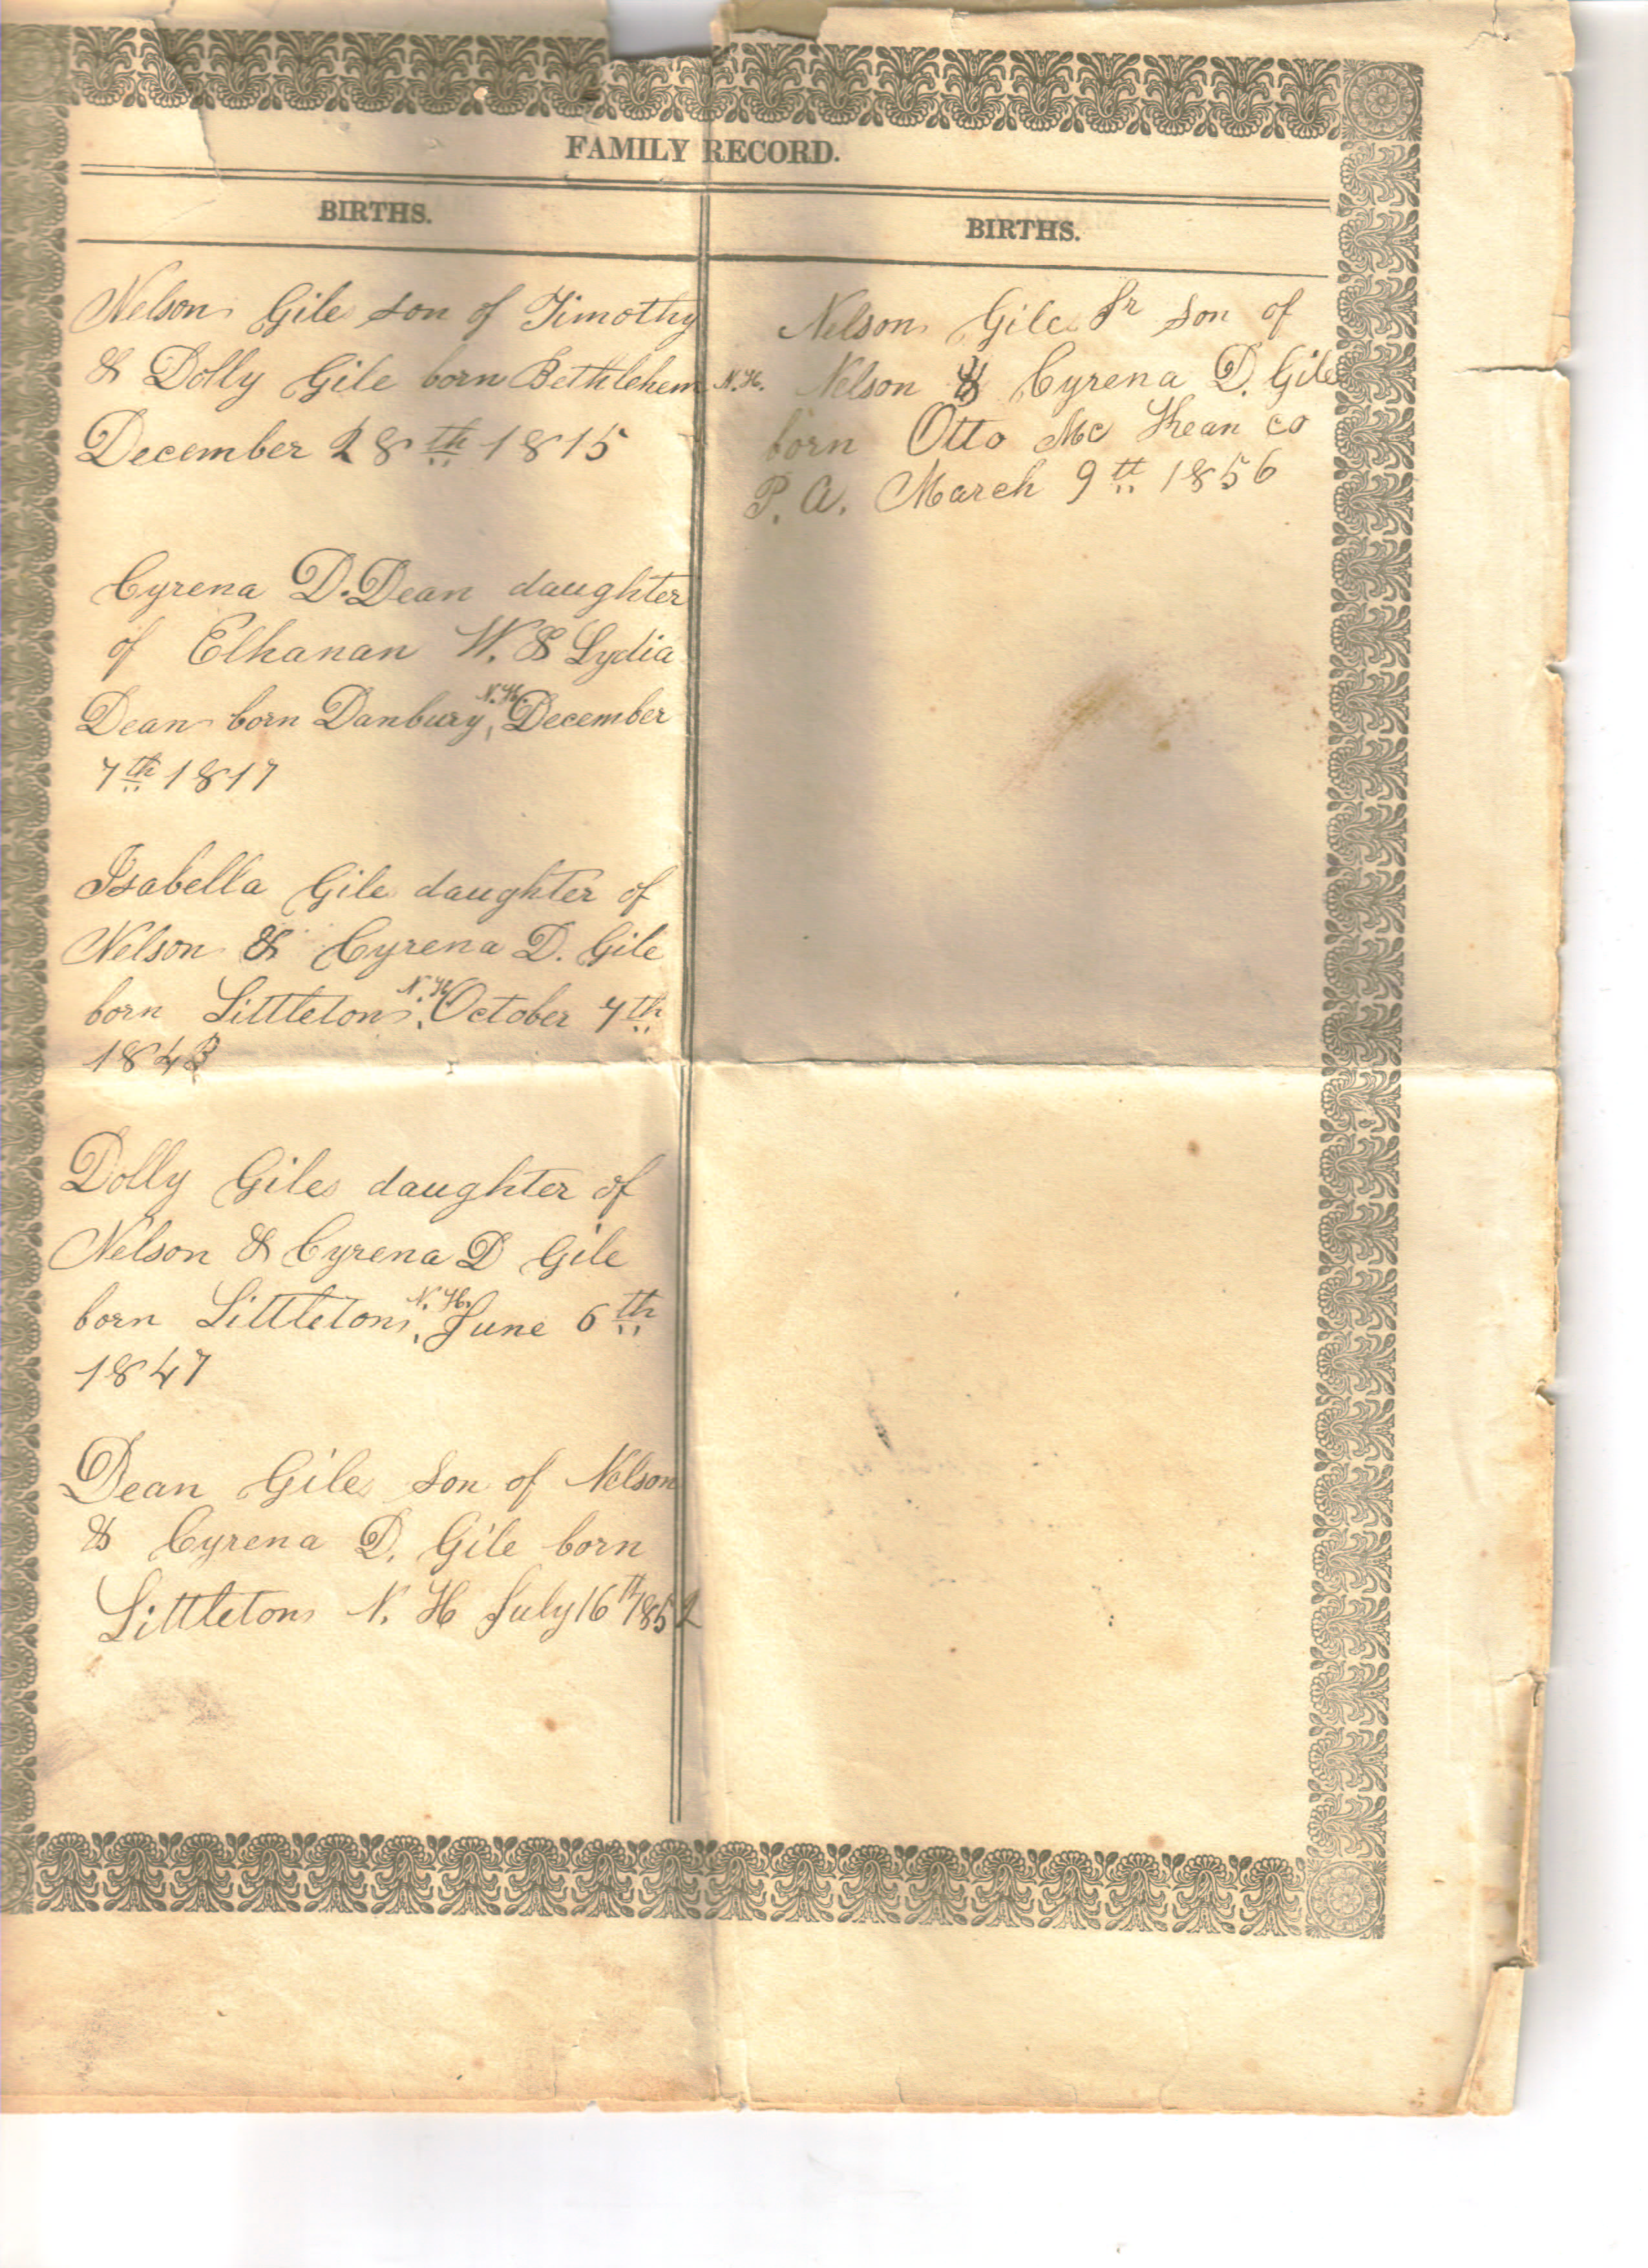 FAMILY RECORD.
BIRTHS.
Nelson Gile son of Timothy
& Dolly Gile born Bethlehem N.H.
December 28th 1815
Cyrena D. Dean daughter
of Elhanan W. & Lydia
Dean born Danbury, N.H. December
7th 1817
Isabella Gile daughter of
Nelson & Cyrena D. Gile
born Littleton, N.H. October 7th
1843
Dolly Gile daughter of
Nelson & Cyrena D Gile
born Littleton, N.H. June 6th
1847
Dean Gile son of Nelson
& Cyrena D. Gile born
Littleton N. H July 16th 1852
BIRTHS.
Nelson Gile Jr son of
Nelson & Cyrena D. Gile
born Otto Mc Kean co
P. A. March 9th 1856